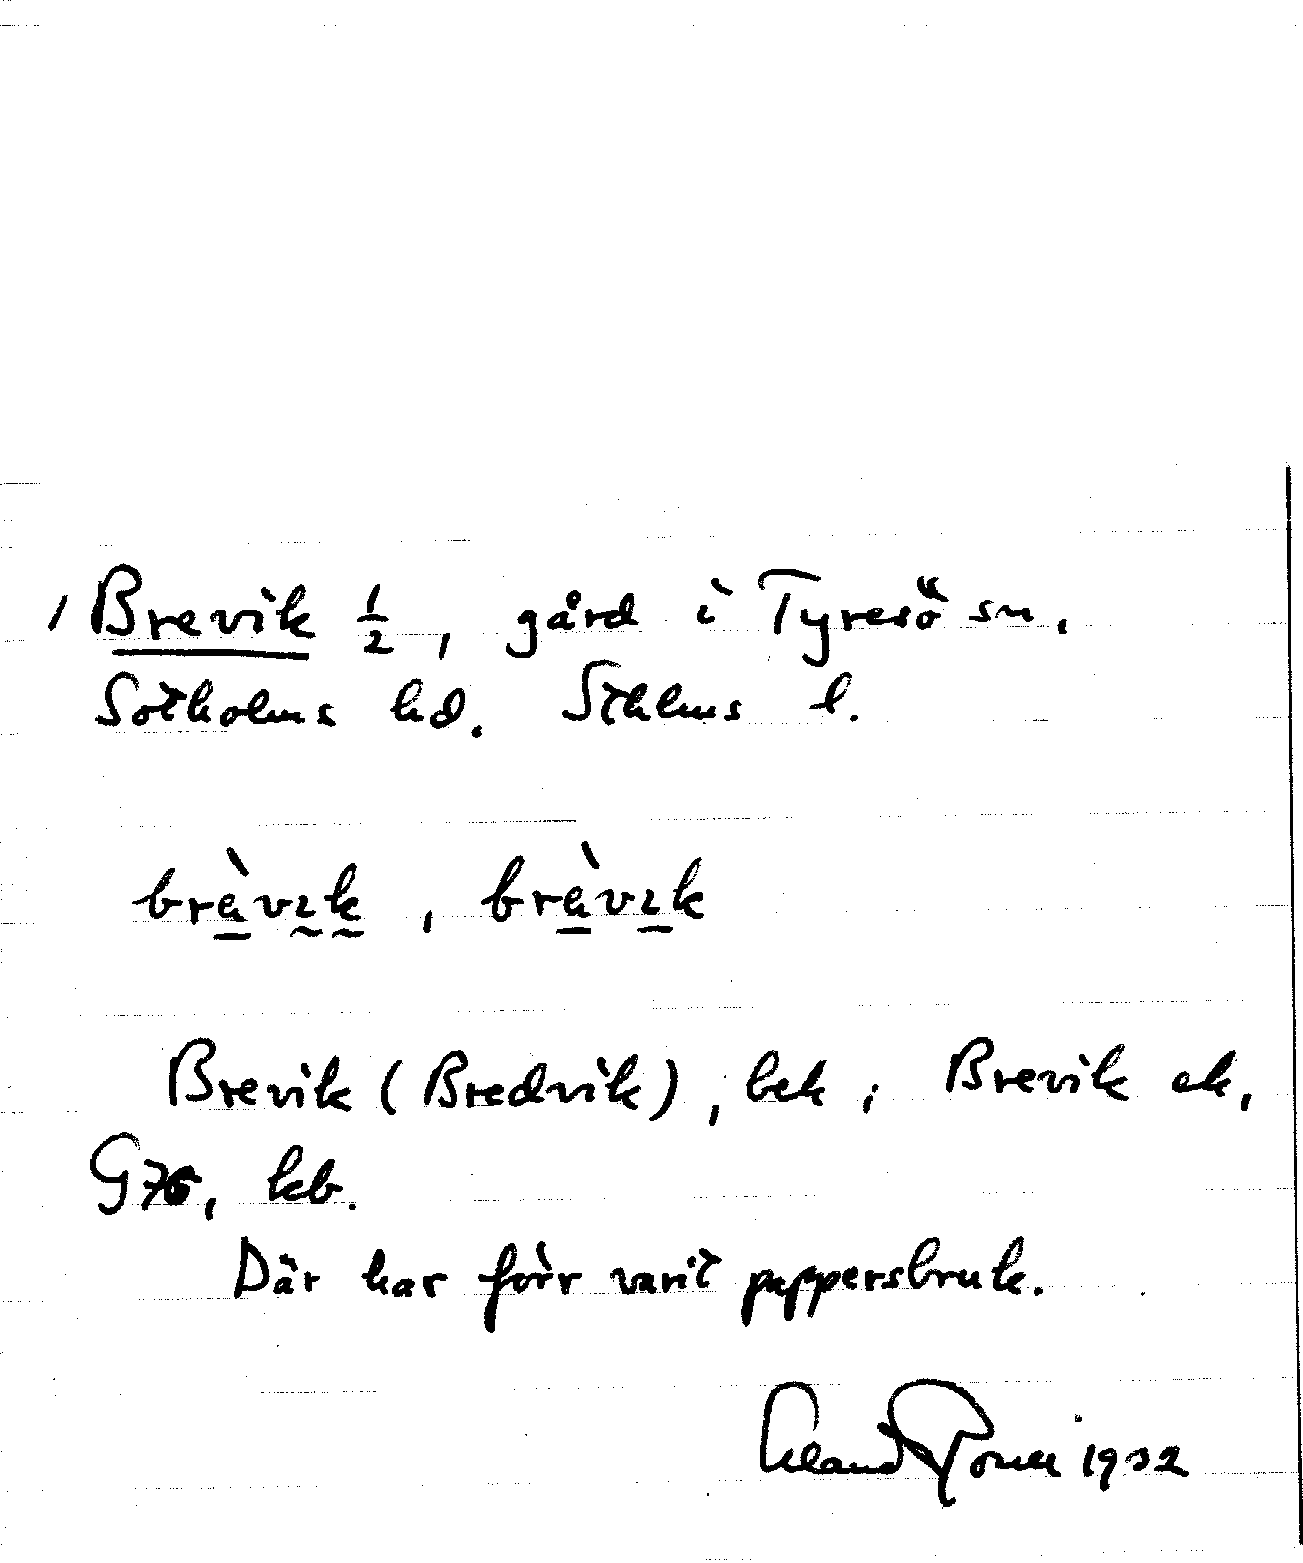 / Brevik 1/2, gård i Tyresö sn,
Sotholms hd. Sthlms l.
bràvık , bràvık
Brevik (Bredvik), bek; Brevik ek,
G76, kb.
Där har förr varit pappersbruk.
1932